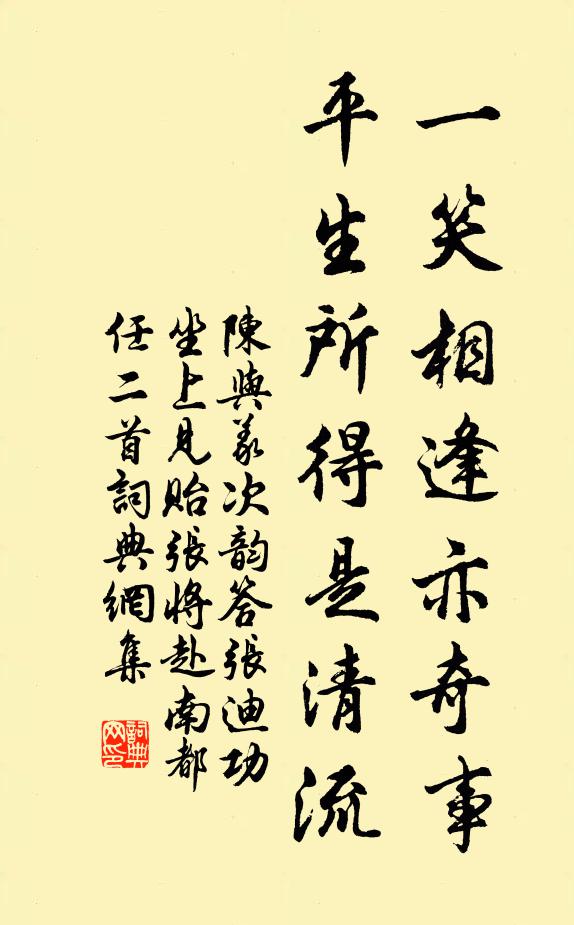 一笑相逢亦奇事
平生所得是清流
陳與義次韵答張迪功
坐上見貽張將赴南都
任二首詞典網集
詞典
网印